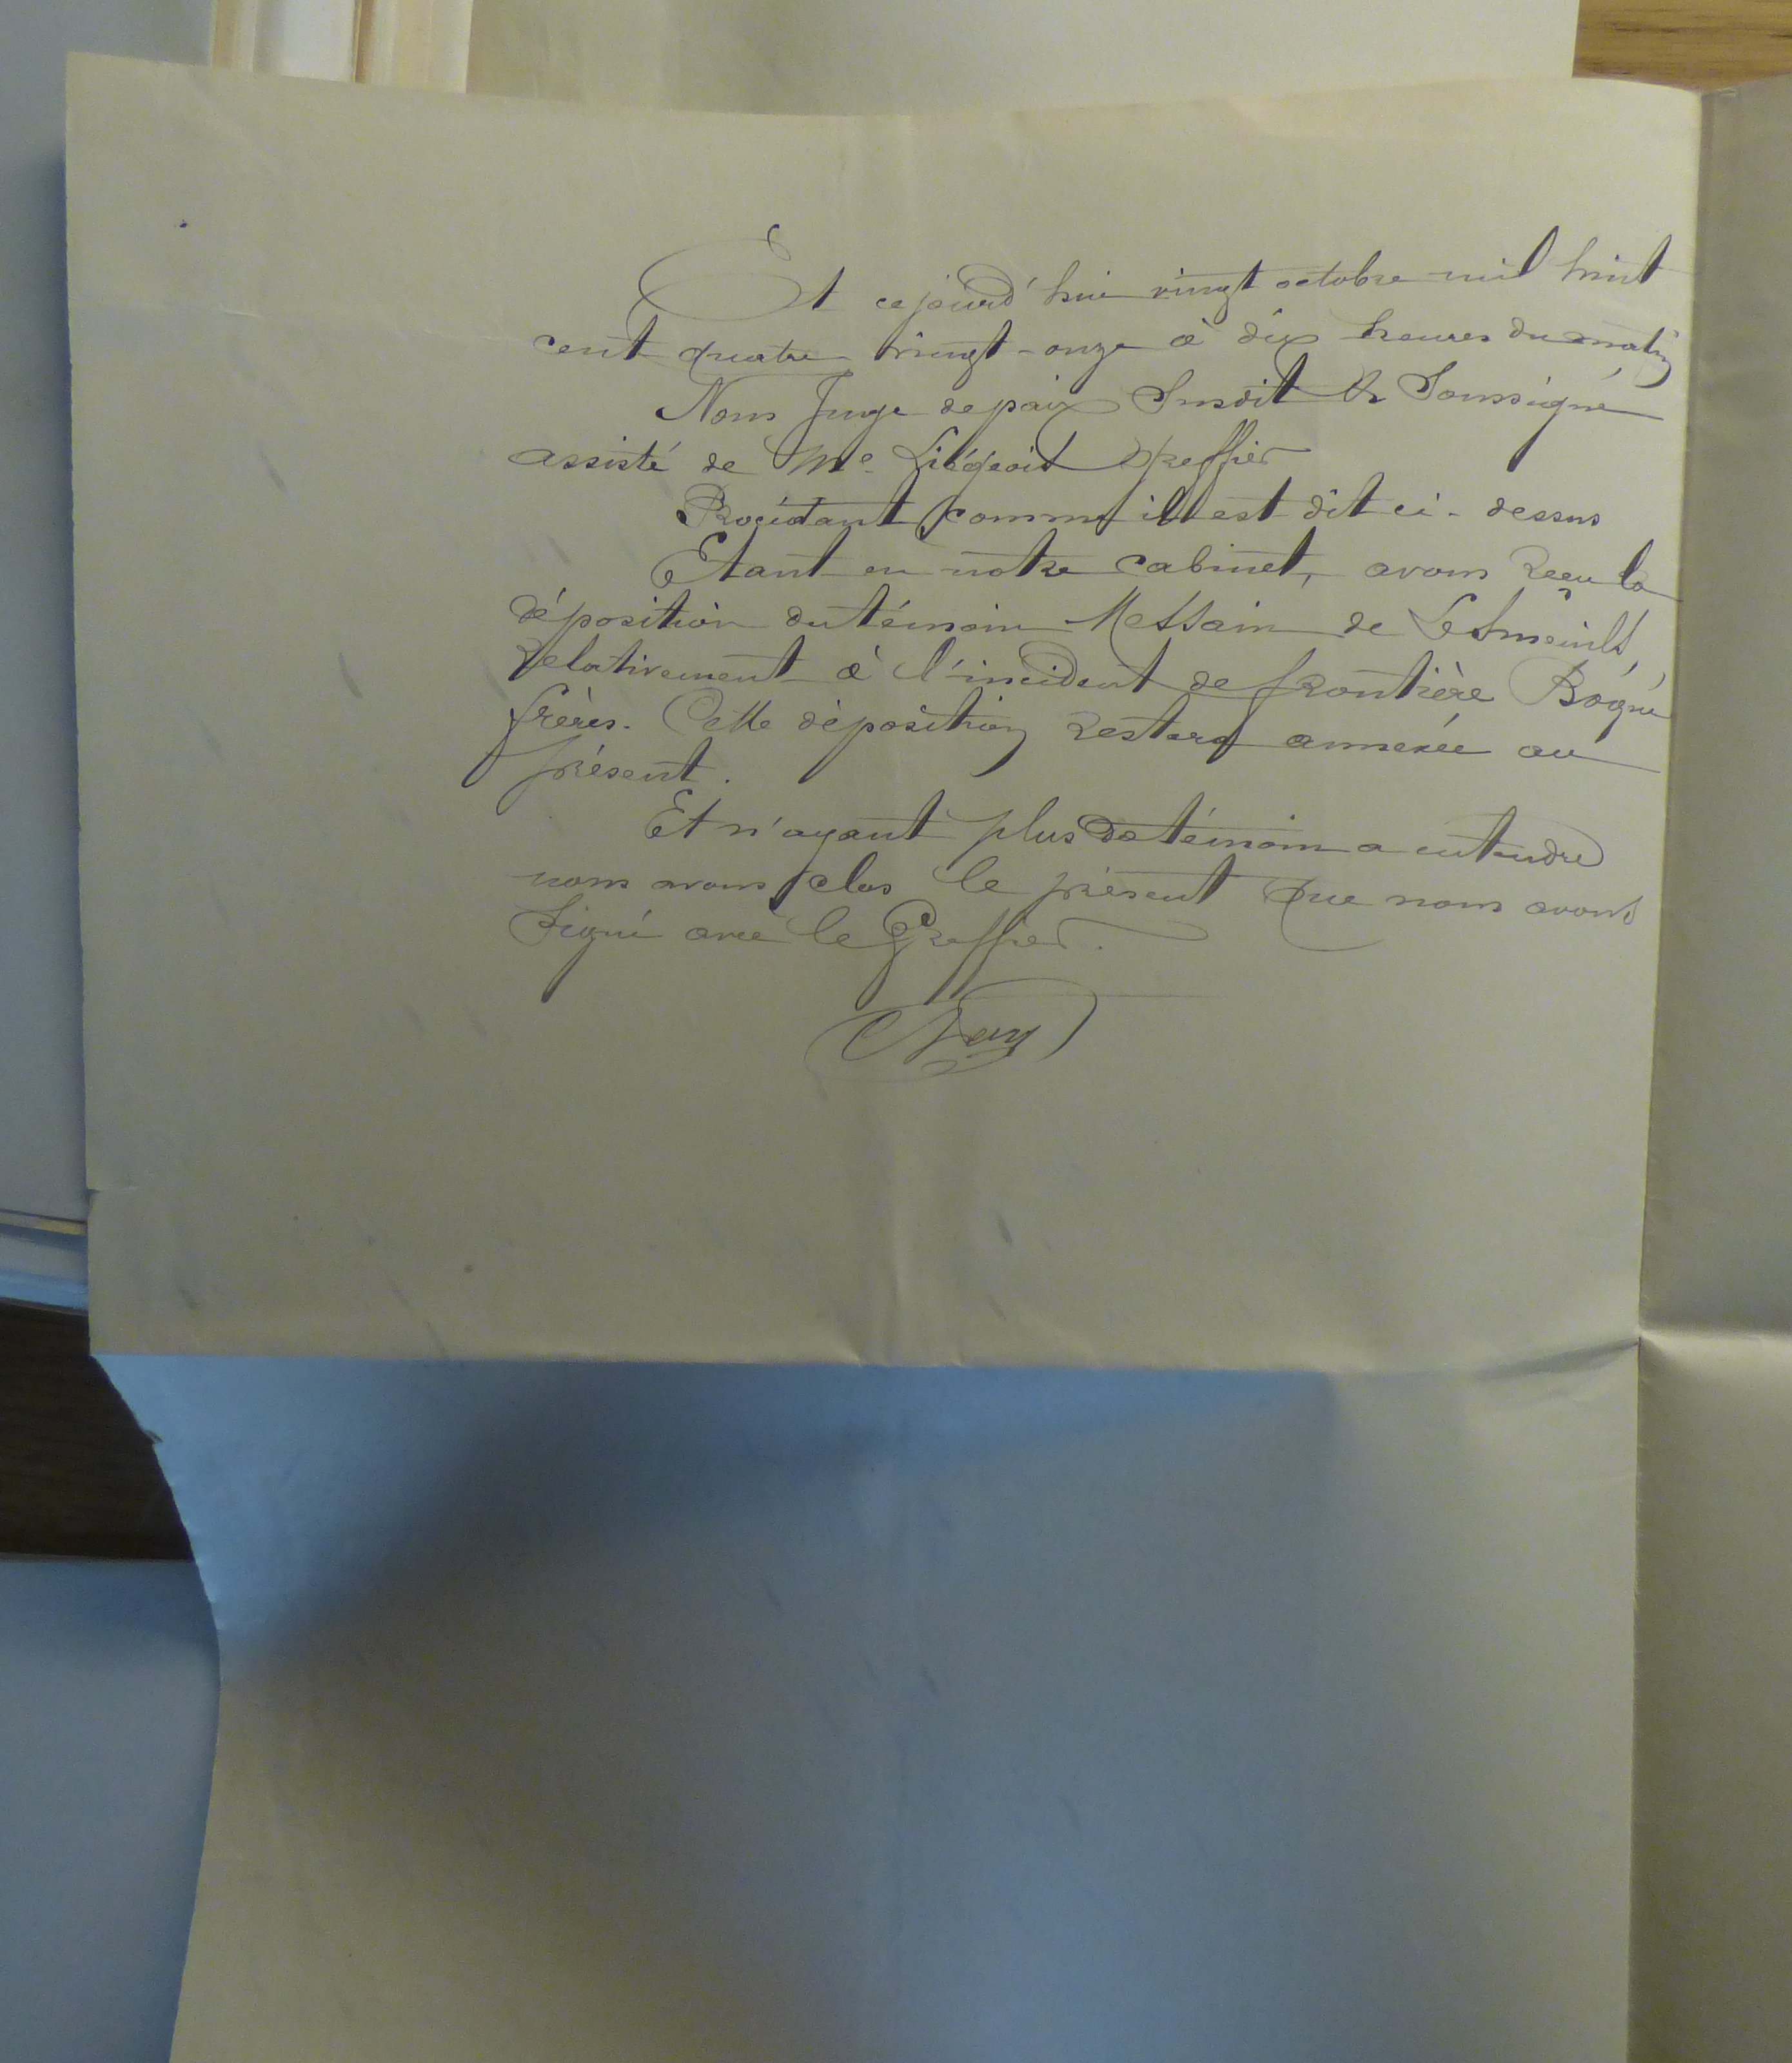 Et cejourd'hui vingt octobre mil huit
cent quatre vingt-onze à dix heures du matin
Nous Juge de paix susdit & soussigné
assisté de Me Liégeois Greffier
Procédant comme il est dit ci-dessus
Etant en notre cabinet, avons reçu la
déposition du témoin Messain de
relativement à l'incident de frontière Bogné
frères. Cette déposition restera annexée au
présent.
Et n'ayant plus de témoin a entendre
nous avons clos le présent que nous avons
signé avec le Greffier.